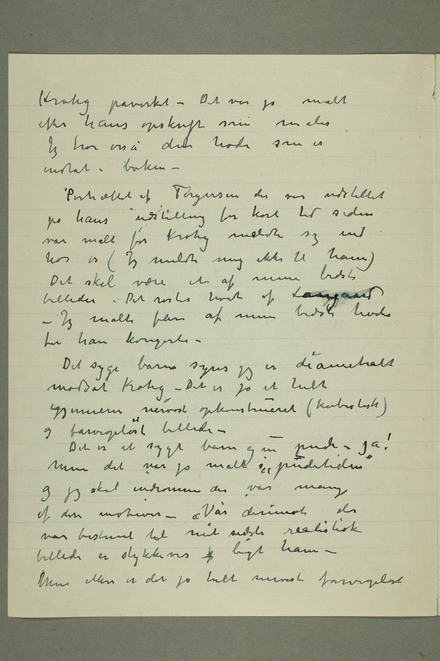 Krohg paavirket – Det var jo malt
efter hans opskrift som maler
Jeg tror også den hode som er
indtat i boken –
Portrættet af Torgersen der var udstillet
på hans udstilling for kort tid siden
var malt før Krohg meldte sig ind
hos os (Jeg meldte mig ikke til ham)
Det skal være et af mine bedste
billeder. Det rostes høit af Langaard
– Jeg malte flere af mine bedste hoder
før han korrigerte –
Det syge barn synes jeg er diametralt
modsat Krohg – Det er jo et helt
igjennem nervøst opkonstrueret (kubistisk)
og farveløst billede –
Det er et sygt barn og en pude – ja!
Men det var jo malt i "pudetiden"
og jeg skal indrømme der var mange
af den motiver – Vår derimot der
var bestemt tal mit sidste realistisk
billede er stykkevis ligt ham –
Men ellers er det jo helt nervøst farveløst